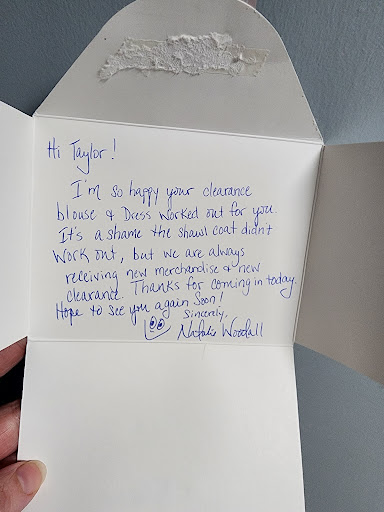 Hi Taylor!
I'm so happy your clearance
blouse & Dress worked out for you.
It's a shame the shawl coat didn't
work out, but we are always
receiving new merchandise & new
clearance. Thanks for coming in today.
Hope to see you again soon!
Sincerely,
Natalie Woodall